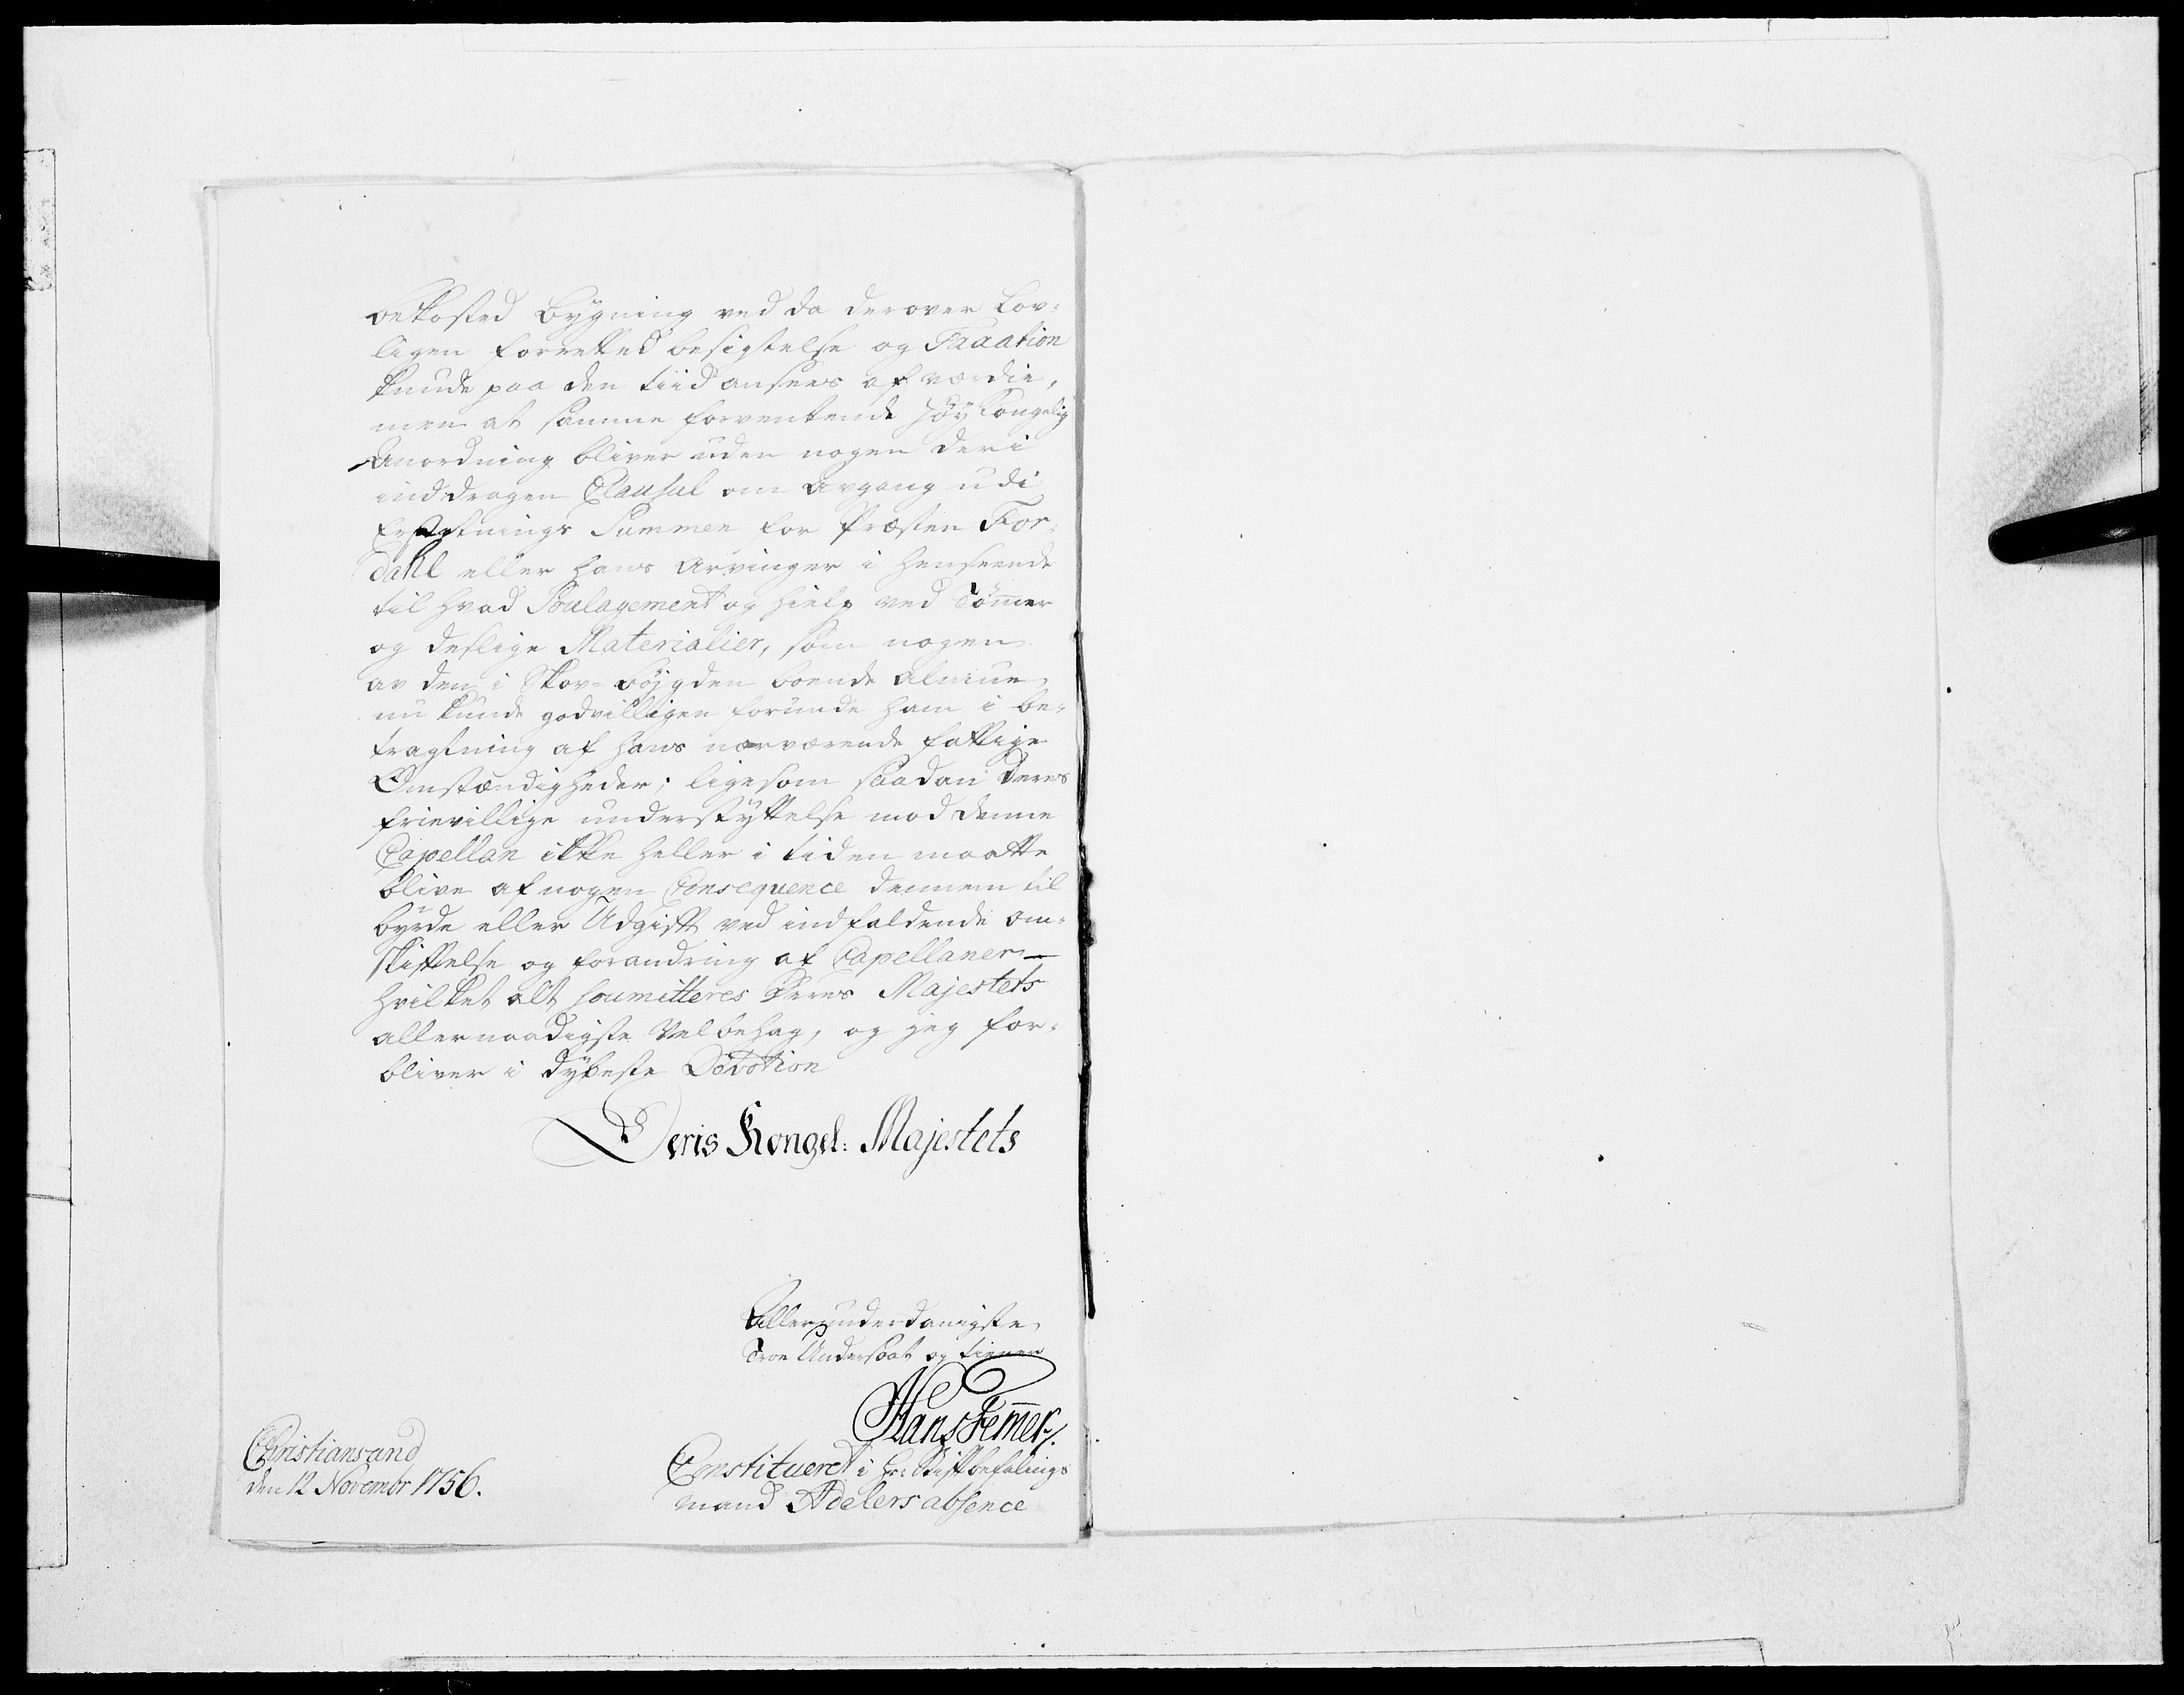 bekosted Bygning ved da derover Lov-
ligen forrettet besigtelse og Taxation
kunde paa den tiid ansees af værdie,
men at samme forventende høy Kongelig
Anordning bliver uden nogen deri
inddragen Clausul om Avgang udi
Ersetnings Summen for Præsten For-
dahl eller hans Arvinger i henseende
til hvad Soulagement og hielp ved Tømmer
og deslige Materialier, som nogen
av den i Skov-bøjgden boende Almue
nu kunde godvilligen forunde ham i be-
tragtning af hans nærværende fattige
Omstændigheder; ligesom saadan deres
frievillige understyttelse mod denne
Capellan ikke heller i tiden maatte
blive af nogen Consequence dennem til
byrde eller Udgift ved indfaldende om-
skiftelse og forandring af Capellaner
hvilket alt soumitteres Deres Majestets
allernaadigste Velbehag, og jeg for-
bliver i dybeste Devotion
Deris Kongel: Majestets
Allerunderdanigste
Troe Undersaat og tiener
Hans Femer
Christiansand
den 12 Novembr 1756.
Constitueret i Hr: Stiftbefalings
mand Adelers absence